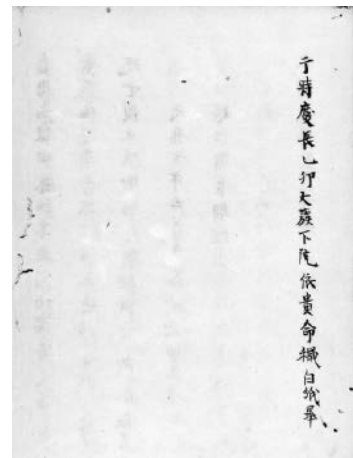 于時慶長乙卯大蔟下旬依貴命穢白紙畢